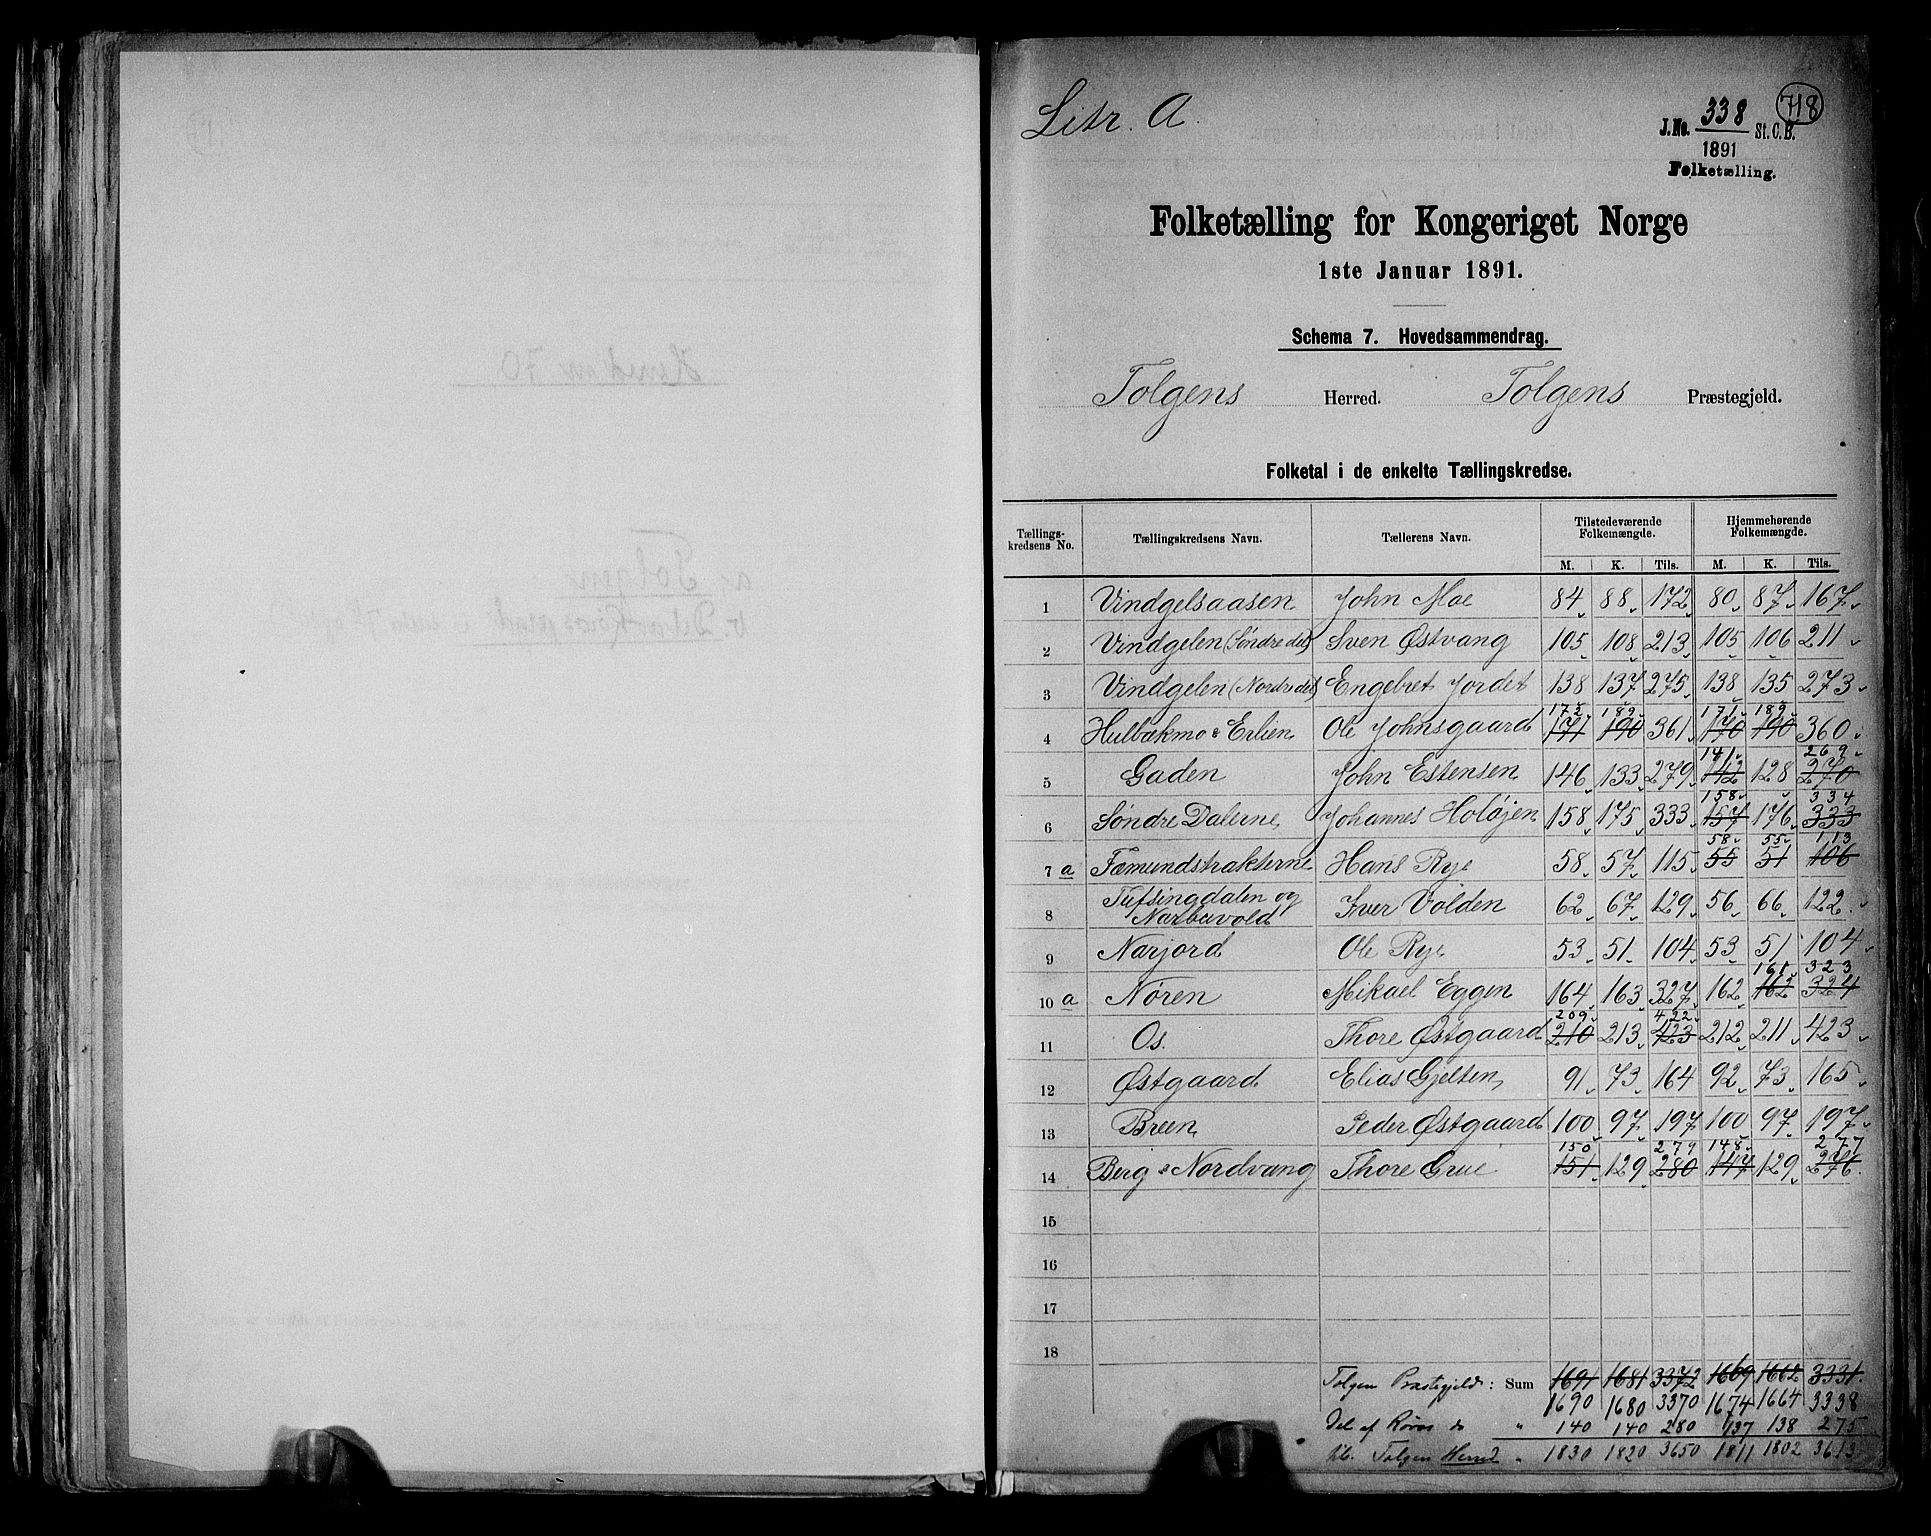 Litr. A.
338
718
J.No. St. C. B.
1891
Folketælling.
Folketælling for Kongeriget Norge
1ste Januar 1891.
Schema 7. Hovedsammendrag.
Tolgens Herred. Tolgens Præstegjeld.
Folketal i de enkelte Tællingskredse.
Tællings-kredsens No. Tællingskredsens Navn. Tællerens Navn. Tilstedeværende Folkemængde. Hjemmehørende Folkemængde.
M. K. Tils. M. K. Tils.
1 Vindgelsaasen John Moe 84 88 172 80 87 167
2 Vindgelen (Søndre del) Sven Østvang 105 108 213 105 106 211
3 Vindgelen (Nordre del) Engebret Jordet 138 137 275 138 135 273
172 189 171 189
4 Hulbækmo & Erlien Ole Johnsgaard 171 190 361 170 190 360
141 269
5 Gaden John Estensen 146 133 279 142 128 270
158 334
6 Søndre Dalerne Johannes Holøjen 158 175 333 157 176 333
58 55 113
7 a Fæmundstrakterne Hans Rye 58 57 115 55 51 106
8 Tufsingdalen og Narbuvold Iver Volden 62 67 129 56 66 122
9 Narjord Ole Rye 53 51 104 53 51 104
161 323
10 a Nøren Mikael Eggen 164 163 327 162 162 324
209 422
11 Os. Thore Østgaard 210 213 423 212 211 423
12 Østgaard Elias Gjelten 91 73 164 92 73 165
13 Breen Peder Østgaard 100 97 197 100 97 197
150 279 148 277
14 Berg & Nordvang Thore Grue 151 129 280 147 129 276
15
16
17
18
Tolgen Præstegjeld : Sum 1691 1681 3372 1669 1662 3331
1690 1680 3370 1674 1664 3338
Del af Røros do " 140 140 280 137 138 275
Tolgen Herred " 1830 1820 3650 1811 1802 3613